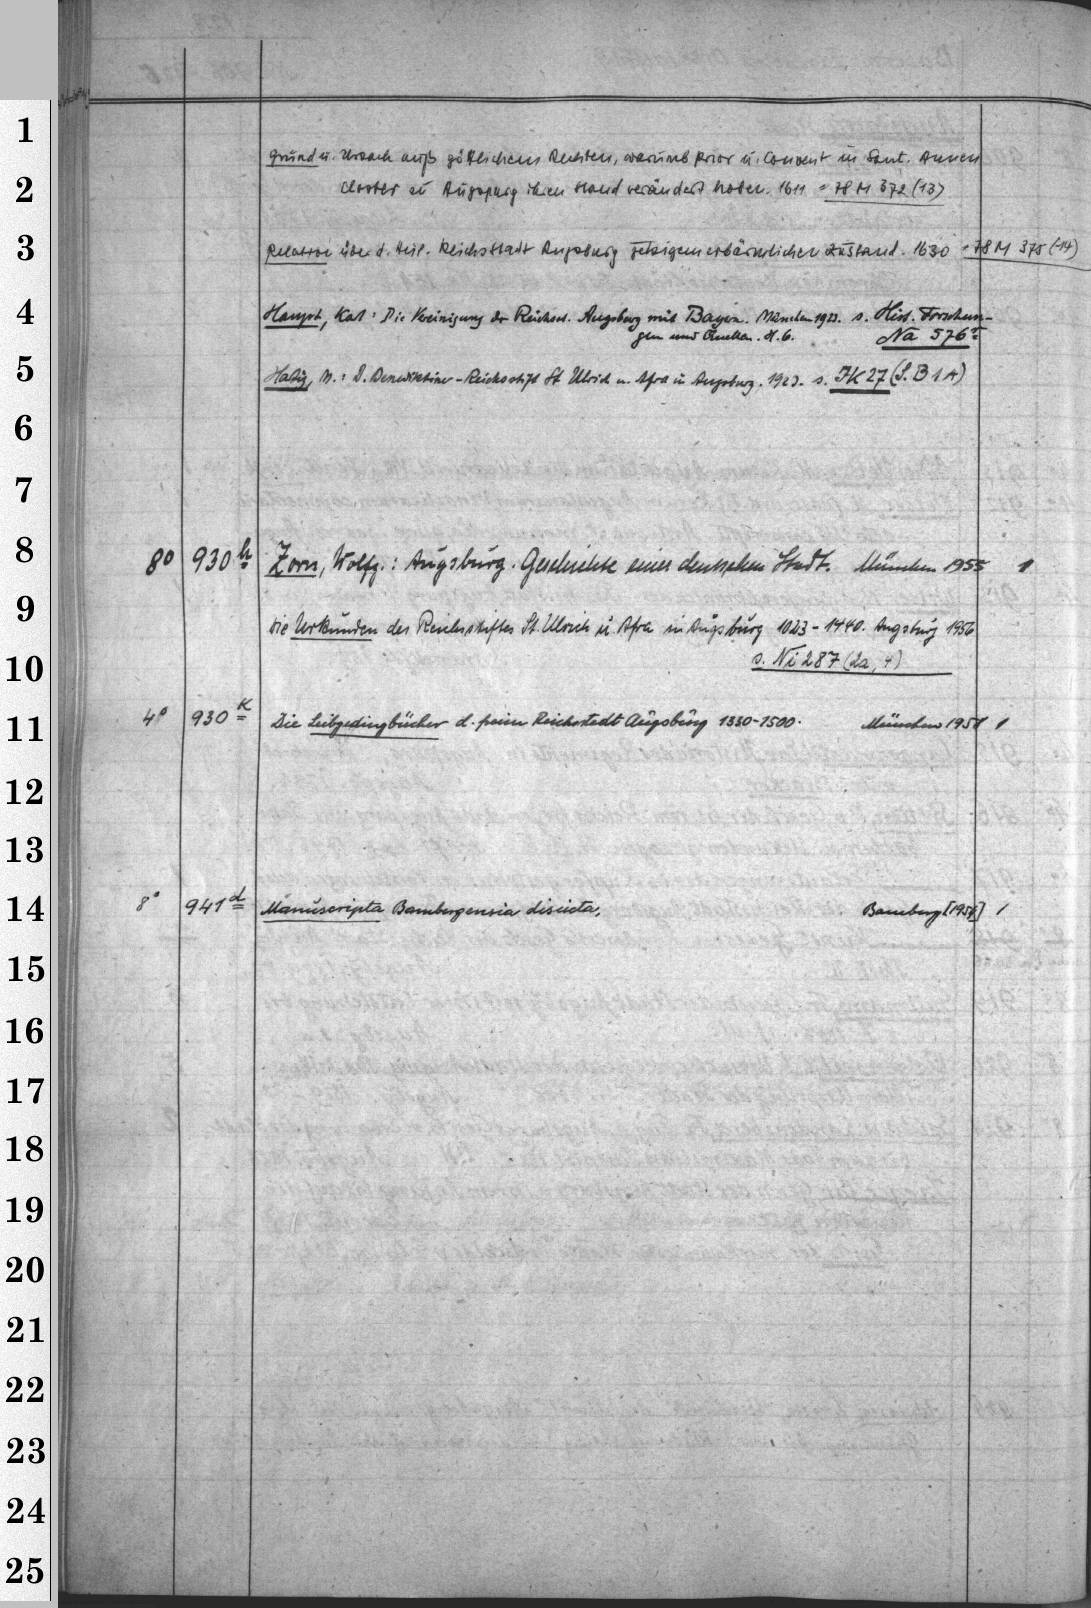 1
2
3
4
5
6
7
8
9
10
11
12
13
14
15
16
17
18
19
20
21
22
23
24
25
Grund u. Ursach auß göttlichem Rechten, warumb Prior u. Convent in Sant. Annen
Closter zu Augspurg ihren Stand verändert haben. 1611 = 78 M 372 (13)
Relation über d. Heil. Reichsstadt Augsburg jetzigen erbärmlichen Zustand. 1630 = 78 M 375 (14)
Haupt, Karl: Die Vereinigung der Reichsst. Augsburg mit Bayern. München 1923. s. Hist. Forschun-
gen und Quellen. H. 6. Na 576
Hartig, M.: D. Benediktiner-Reichsstift St Ulrich u. Afra in Augsburg. 1923. s. JK 27 (S. B 1 A)
8° 930 h Zorn, Wolfg.: Augsburg. Geschichte einer deutschen Stadt. München 1955 1
Die Urkunden des Reichsstiftes St. Ulrich u. Afra in Augsburg 1023-1440. Augsburg 1956
s. Ni 287 (2a, 4)
4° 930 k Die Leibgedingbücher d. freien Reichsstadt Augsburg 1330-1500. München 1951 1
8° 941 d Manuscripta Bambergensia disiecta. Bamberg [1956] 1